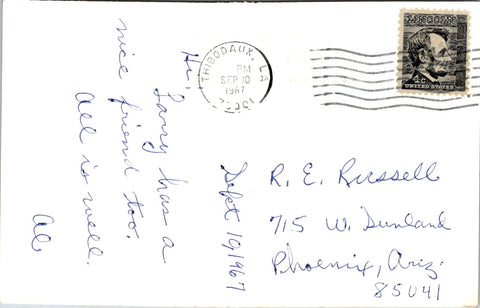 Hi,
Larry has a
nice friend too.
All is well.
Al
THIBODAUX, LA
PM
SEP 10
1967
70301
LINCOLN
4c
UNITED STATES
Sept 10, 1967
R. E. Russell
715 W. Dunland
Phoenix, Ariz.
85041